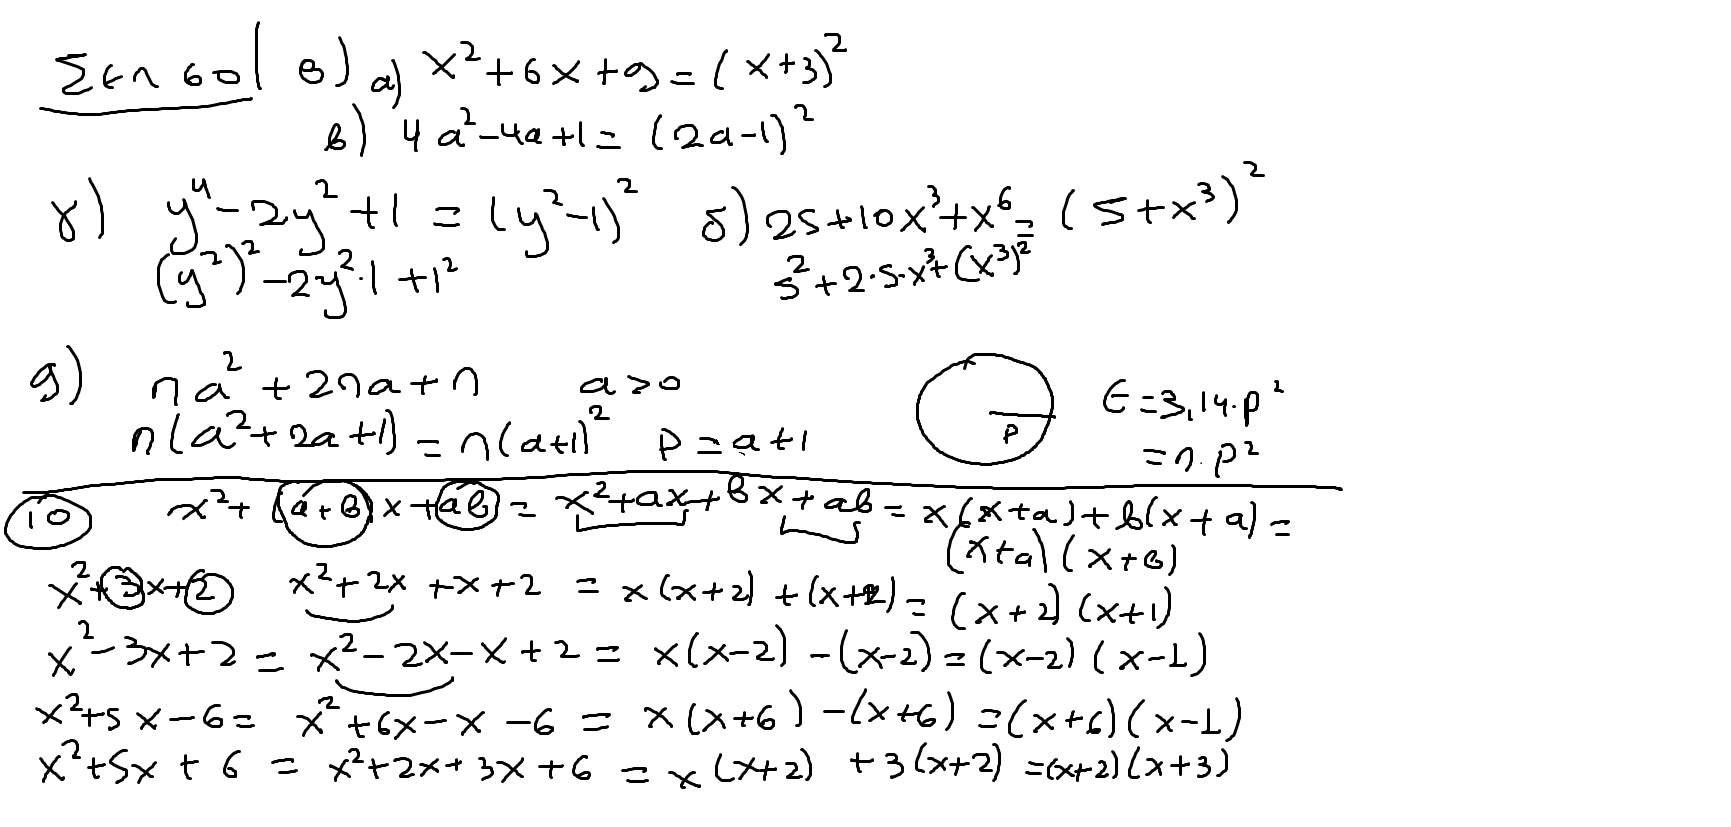 Σελ 60 | 8) α) x²+6x+9=(x+3)²
β) 4α²-4α+1=(2α-1)²
γ) y⁴-2y²+1=(y²-1)² δ) 25+10x³+x⁶=(5+x³)²
(y²)²-2y²·1+1² 5²+2·5·x³+(x³)²
9) πα²+2πα+π α>0 Ε=3,14·ρ²
π(α²+2α+1)=π(α+1)² ρ=α+1 ρ =π·ρ²
10 x²+(α+β)x+αβ=x²+αx+βx+αβ=x(x+α)+β(x+α)=
(x+α)(x+β)
x²+3x+2 x²+2x+x+2=x(x+2)+(x+2)=(x+2)(x+1)
x²-3x+2=x²-2x-x+2=x(x-2)-(x-2)=(x-2)(x-1)
x²+5x-6=x²+6x-x-6=x(x+6)-(x+6)=(x+6)(x-1)
x²+5x+6=x²+2x+3x+6=x(x+2)+3(x+2)=(x+2)(x+3)